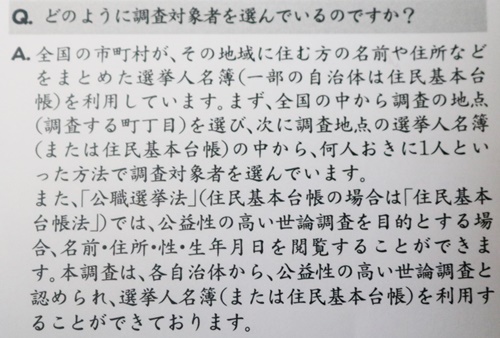 Q. どのように調査対象者を選んでいるのですか？
A. 全国の市町村が、その地域に住む方の名前や住所など
をまとめた選挙人名簿(一部の自治体は住民基本台
帳)を利用しています。まず、全国の中から調査の地点
(調査する町丁目)を選び、次に調査地点の選挙人名簿
(または住民基本台帳)の中から、何人おきに1人とい
った方法で調査対象者を選んでいます。
また、「公職選挙法」(住民基本台帳の場合は「住民基本
台帳法」)では、公益性の高い世論調査を目的とする場
合、名前・住所・性・生年月日を閲覧することができま
す。本調査は、各自治体から、公益性の高い世論調査と
認められ、選挙人名簿(または住民基本台帳)を利用す
ることができております。